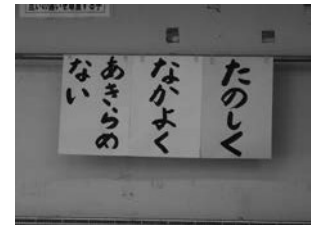 たのしく
なかよく
あきらめ
ない